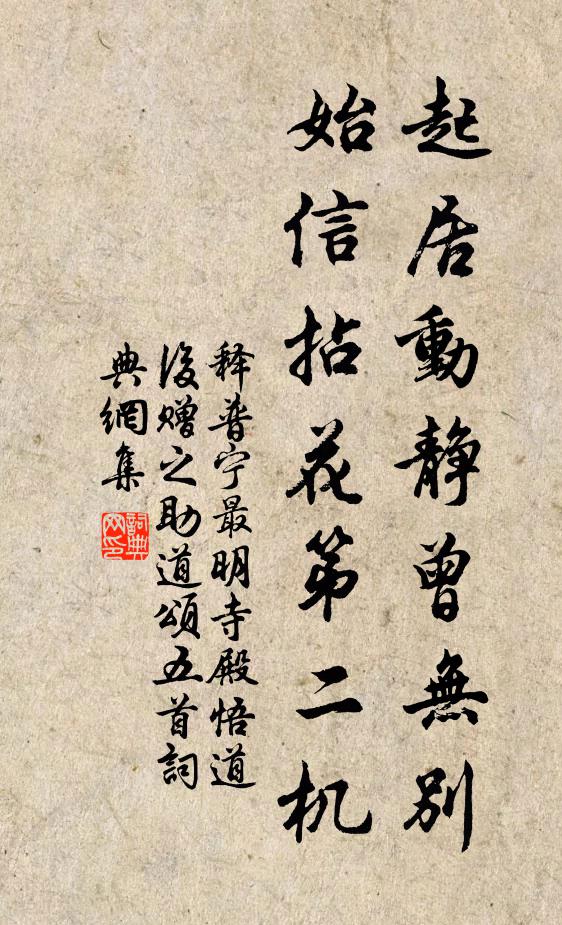 起居動靜曾無別
始信拈花第二机
释普宁最明寺殿悟道
後赠之助道頌五首詞
典網集
詞典
网印